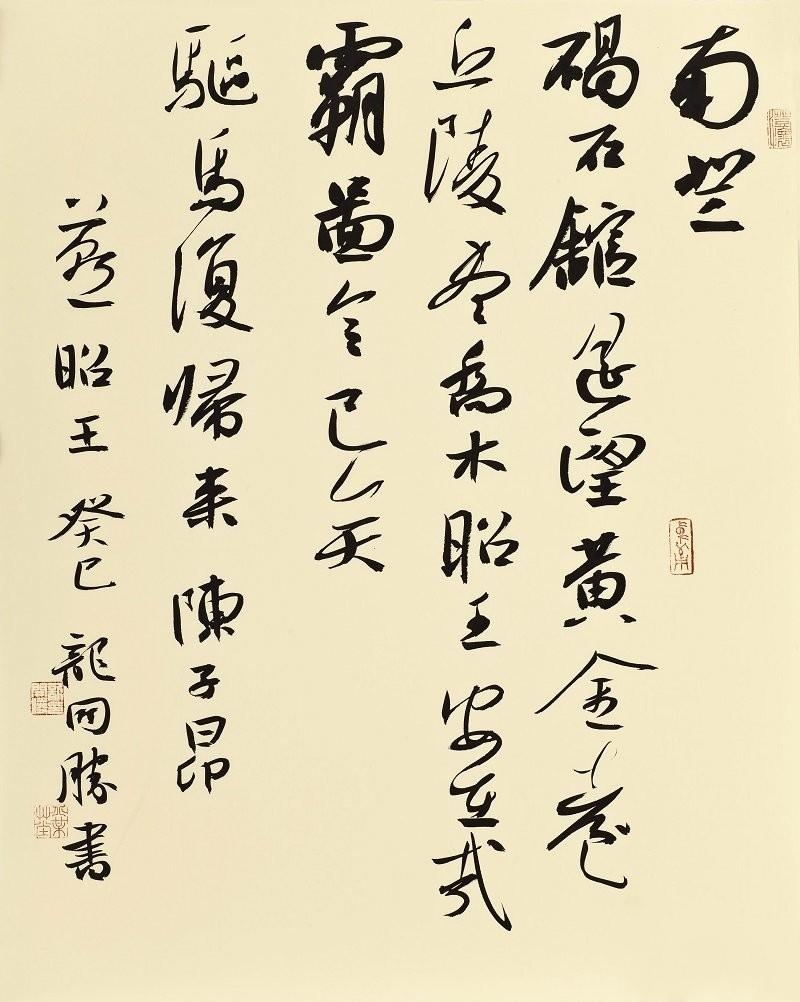 南登
碣石館遙望黃金臺
丘陵盡喬木昭王安在哉
霸圖今已矣
驅馬復歸来陳子昂
燕昭王癸巳龍開勝書